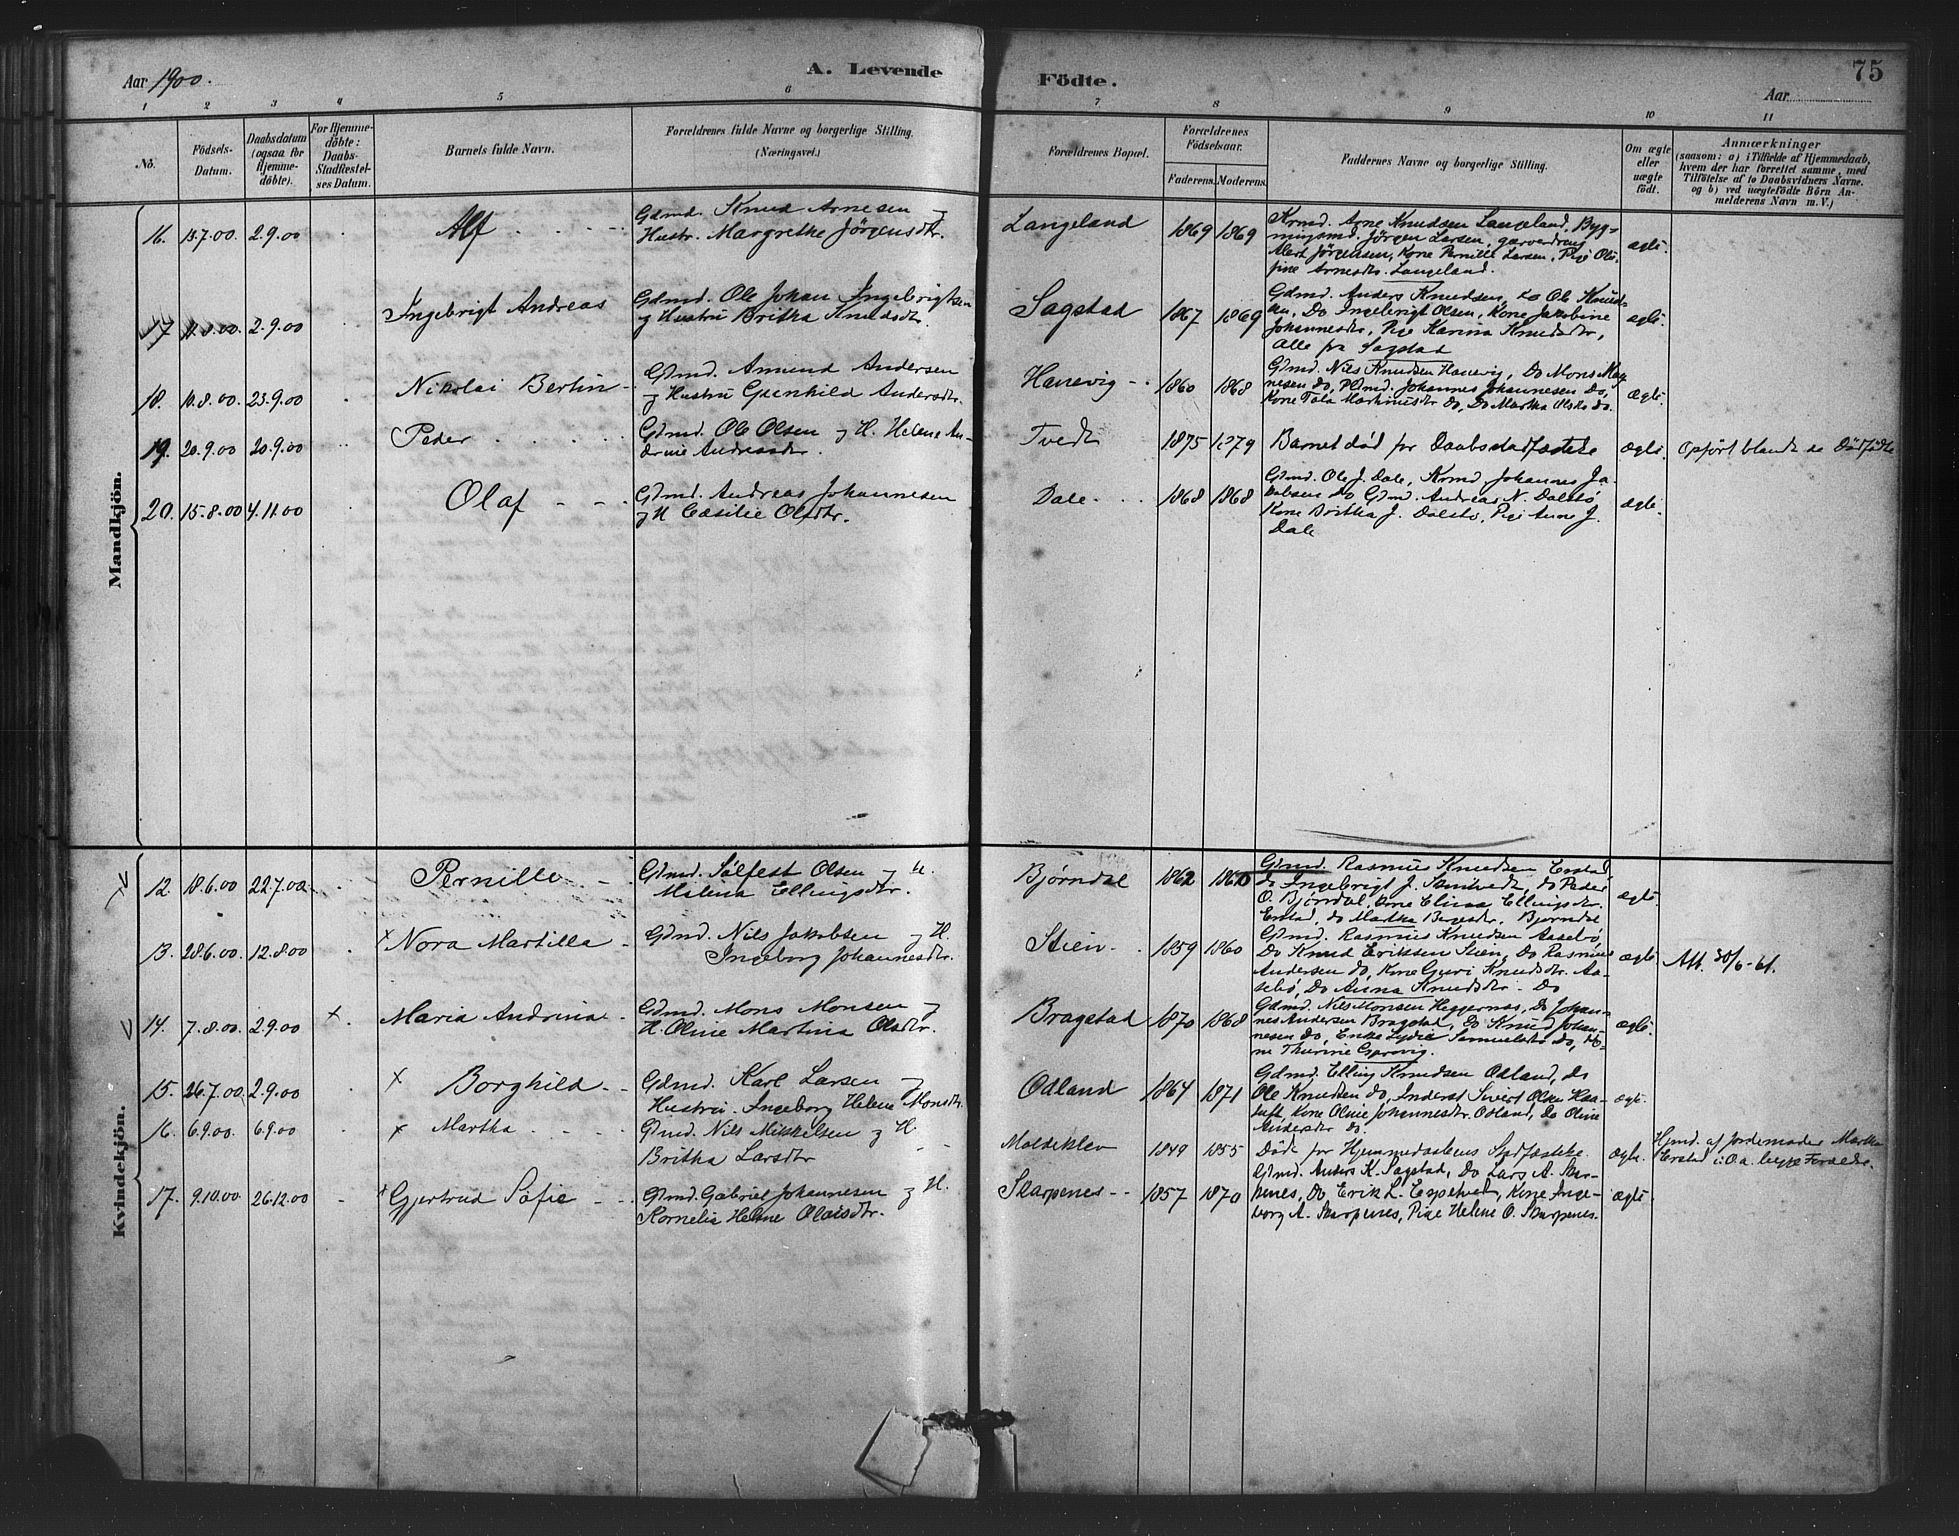 Aar 1900.
A. Levende
Födte.
75
Aar
1 2 3 4 5 6 7 8 9 10 11
No.
Födsels-
Datum.
Daabsdatum
(ogsaa for
Hjemme-
döbte).
For Hjemme-
döbte:
Daabs-
Stadfæstel-
ses Datum.
Barnets fulde Navn.
Forældrenes fulde Navne og borgerlige Stilling.
(Næringsvei.)
Forældrenes Bopæl.
Forældrenes
Födselsaar.
Faderens. Moderens.
Faddernes Navne og borgerlige Stilling.
Om ægte
eller
uægte
födt.
Anmærkninger
(saasom: a) i Tilfælde af Hjemmedaab,
hvem der har forrettet samme, med
Tilföielse af to Daabsvidners Navne,
og b) ved uægtefödte Börn An-
melderens Navn m. V.)
Mandkjön.
16. 15.7.00. 2.9.00 Alf
Gdmd. Knud Arnesen og
Hustr. Margrethe Jørgensdtr.
Langeland 1869 1869
Krmd. Arne Knudsen Langeland, Byg-
ningsmd. Jörgen Larsen, garverdreng
Jörgensen, Kone Pernille Larsen, Pige Ole-
fine Arnesdtr. Langeland.
ægte.
17 2.9.00 Ingebrigt Andreas
Gdmd. Ole Johan Ingebrigtsen
og Hustru Britha Knudsdtr.
Sagstad 1867 1869
Gdmd. Anders Knudsen, do Ole Knud-
sen, Do Ingebrigt Olsen, Kone Jakobine
Johannesdtr, Pige Karina Knudsdtr,
Alle fra Sagstad
ægte.
18. 10.8.00. 23.9.00 Nikolai Bertin
Gdmd. Amund Andersen
og Hustru Gunhild Andersdtr.
Hanevig 1860 1868
Gdmd. Nils Knudsen Hanevig, Do Mons Mag-
nesen do, Johannes Johannesen Do,
Kone Tala Martinusdtr do, Do Martha Olsdtr do.
ægte.
19. 20.9.00 20.9.00 Peder
Gdmd. Ole Olsen og H. Helene An-
drine Andreasdtr.
Tvedt 1875 1879
Barnet död för Daabsstadfæstelse
ægte.
Opfört blandt de Dödfödte
20. 15.8.00 4.11.00 Olaf
Gdmd. Andreas Johannesen
og H Cæsilie Olsdtr.
Dale 1868 1868
Gdmd. Ole J. Dale, Krmd. Johannes Ja-
kobsen do Gdmd. Andreas N. Dalsbö
Kone Britha J. Dalsbö, Pige Anne J.
Dale
ægte.
Kvindekjön.
12. 18.6.00 22.7.00 Pernille
Gdmd. Sølfest Olsen og H.
Malena Ellingsdtr.
Bjørndal 1862
Gdmd. Rasmus Knudsen Erstad
do Ingebrigt J. do Peder
O. Bjørndal, Kone Elina Ellingsdtr.
Erstad, do Martha Børgesdtr. Bjørndal
ægte.
13. 28.6.00 12.8.00 x Nora Martilla
Gdmd. Nils Jakobsen og H.
Ingeborg Johannesdtr.
Stien 1859 1860
Gdmd. Rasmus Knudsen Aasebö
Do Knud Eriksen Stien, Do Rasmus
Andersen do, Kone Guri Knudsdtr. Aa-
sebö, Do Anna Knudsdtr. Do
ægte.
Att. 30/6-61.
14. 7.8.00. 2.9.00 x. Maria Andrina
Gdmd. Mons Monsen og
H. Oline Martina Olsdtr.
Bragstad 1870 1868
Gdmd. Nils Monsen Heggernæs, Do Johan-
nes Andersen Bragstad, Do Knud Johan-
nesen do, Enke Lydie Samuelsdtr do, Ko-
ne Thurine Gjervig.
ægte.
15. 26.7.00. 2.9.00 x Borghild
Gdmd. Karl Larsen og
Hustru. Ingeborg Helene Monsdtr.
Odland 1864 1871
Gdmd. Elling Knudsen Odland, do
Ole Knudsen do, Inderst Sivert Olsen Haa-
tuft, Kone Oline Johannesdtr. Odland, Do Oline
Andersdtr do.
ægte
16. 6.9.00. 6.9.00 x Martha
Gdmd. Nils Mikkelsen og H
Britha Larsdtr
Moldeklev 1849 1855
Död för Hjemmedaabens Stadfæstelse.
ægte.
Hjmd. af Jordemoder Martha
Erstad i O. a. begge Forældre.
17. 9.10.00 26.12.00 x Gjertrud Sofie
Gdmd. Gabriel Johannesen og H.
Kornelia Helene Olaisdtr.
Skarpenes 1857 1870
Gdmd. Anders K. Sagstad, Do Lars A. Skar-
penes, Do Erik L. Espetvedt, Kone Inge-
borg A. Skarpenes, Pige Helene O. Skarpenes.
ægte